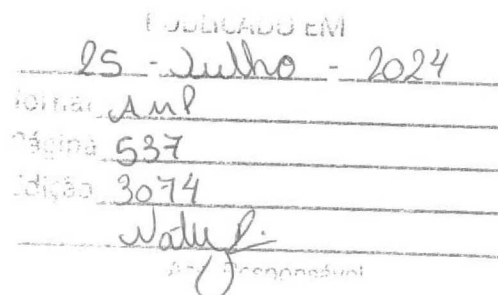 PUBLICADO EM
25 - Julho - 2024
Jornal AMP
Página 537
Edição 3074
Responsável